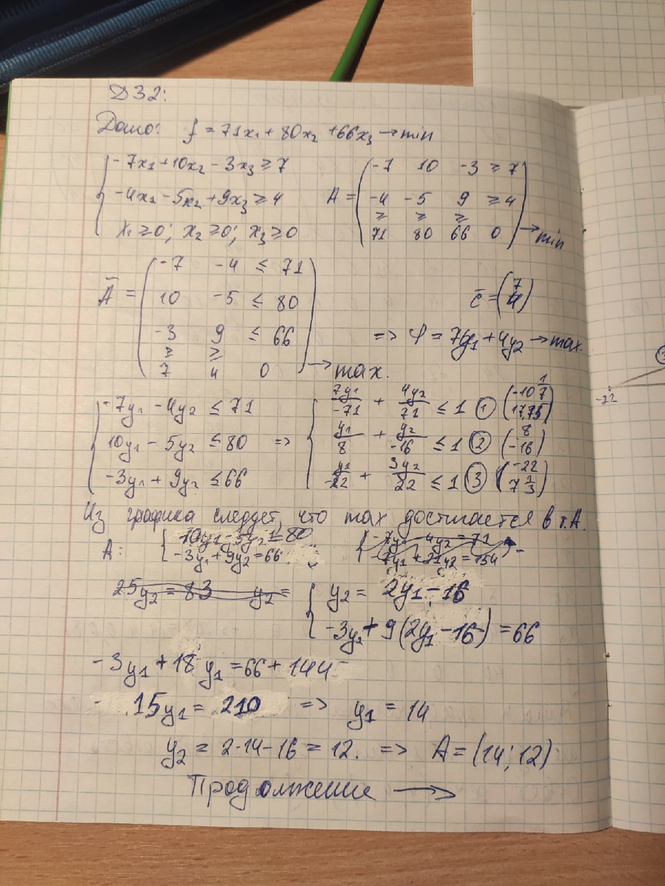 ДЗ2:
Дано: f = 71x₁ + 80x₂ + 66x₃ → min
{ -7x₁ + 10x₂ - 3x₃ ≥ 7
-4x₁ - 5x₂ + 9x₃ ≥ 4
x₁ ≥ 0; x₂ ≥ 0; x₃ ≥ 0
A = ( -7 10 -3 ≥ 7
-4 -5 9 ≥ 4
≥ ≥ ≥
71 80 66 0 ) → min
Ā = ( -7 -4 ≤ 71
10 -5 ≤ 80
-3 9 ≤ 66
≥ ≥
7 4 0 ) → max.
c̄ = ( 7
4 )
=> φ = 7y₁ + 4y₂ → max.
{ -7y₁ - 4y₂ ≤ 71
10y₁ - 5y₂ ≤ 80 =>
-3y₁ + 9y₂ ≤ 66
{ 7y₁/-71 + 4y₂/71 ≤ 1 ① ( -10 1/7
17,75 )
y₁/8 + y₂/-16 ≤ 1 ② ( 8
-16 )
y₁/-22 + 3y₂/22 ≤ 1 ③ ( -22
7 1/3 )
-22
Из графика следует, что max достигается в т.А.
А: { 10y₁ - 5y₂ = 80
-3y₁ + 9y₂ = 66
{ -7y₁ - 4y₂ = 71
+ 21y₂ = 154
25y₂ = 83 y₂ =
{ y₂ = 2y₁ - 16
-3y₁ + 9(2y₁ - 16) = 66
-3y₁ + 18y₁ = 66 + 144
15y₁ = 210 => y₁ = 14
y₂ = 2·14 - 16 = 12. => A = (14; 12)
Продолжение →